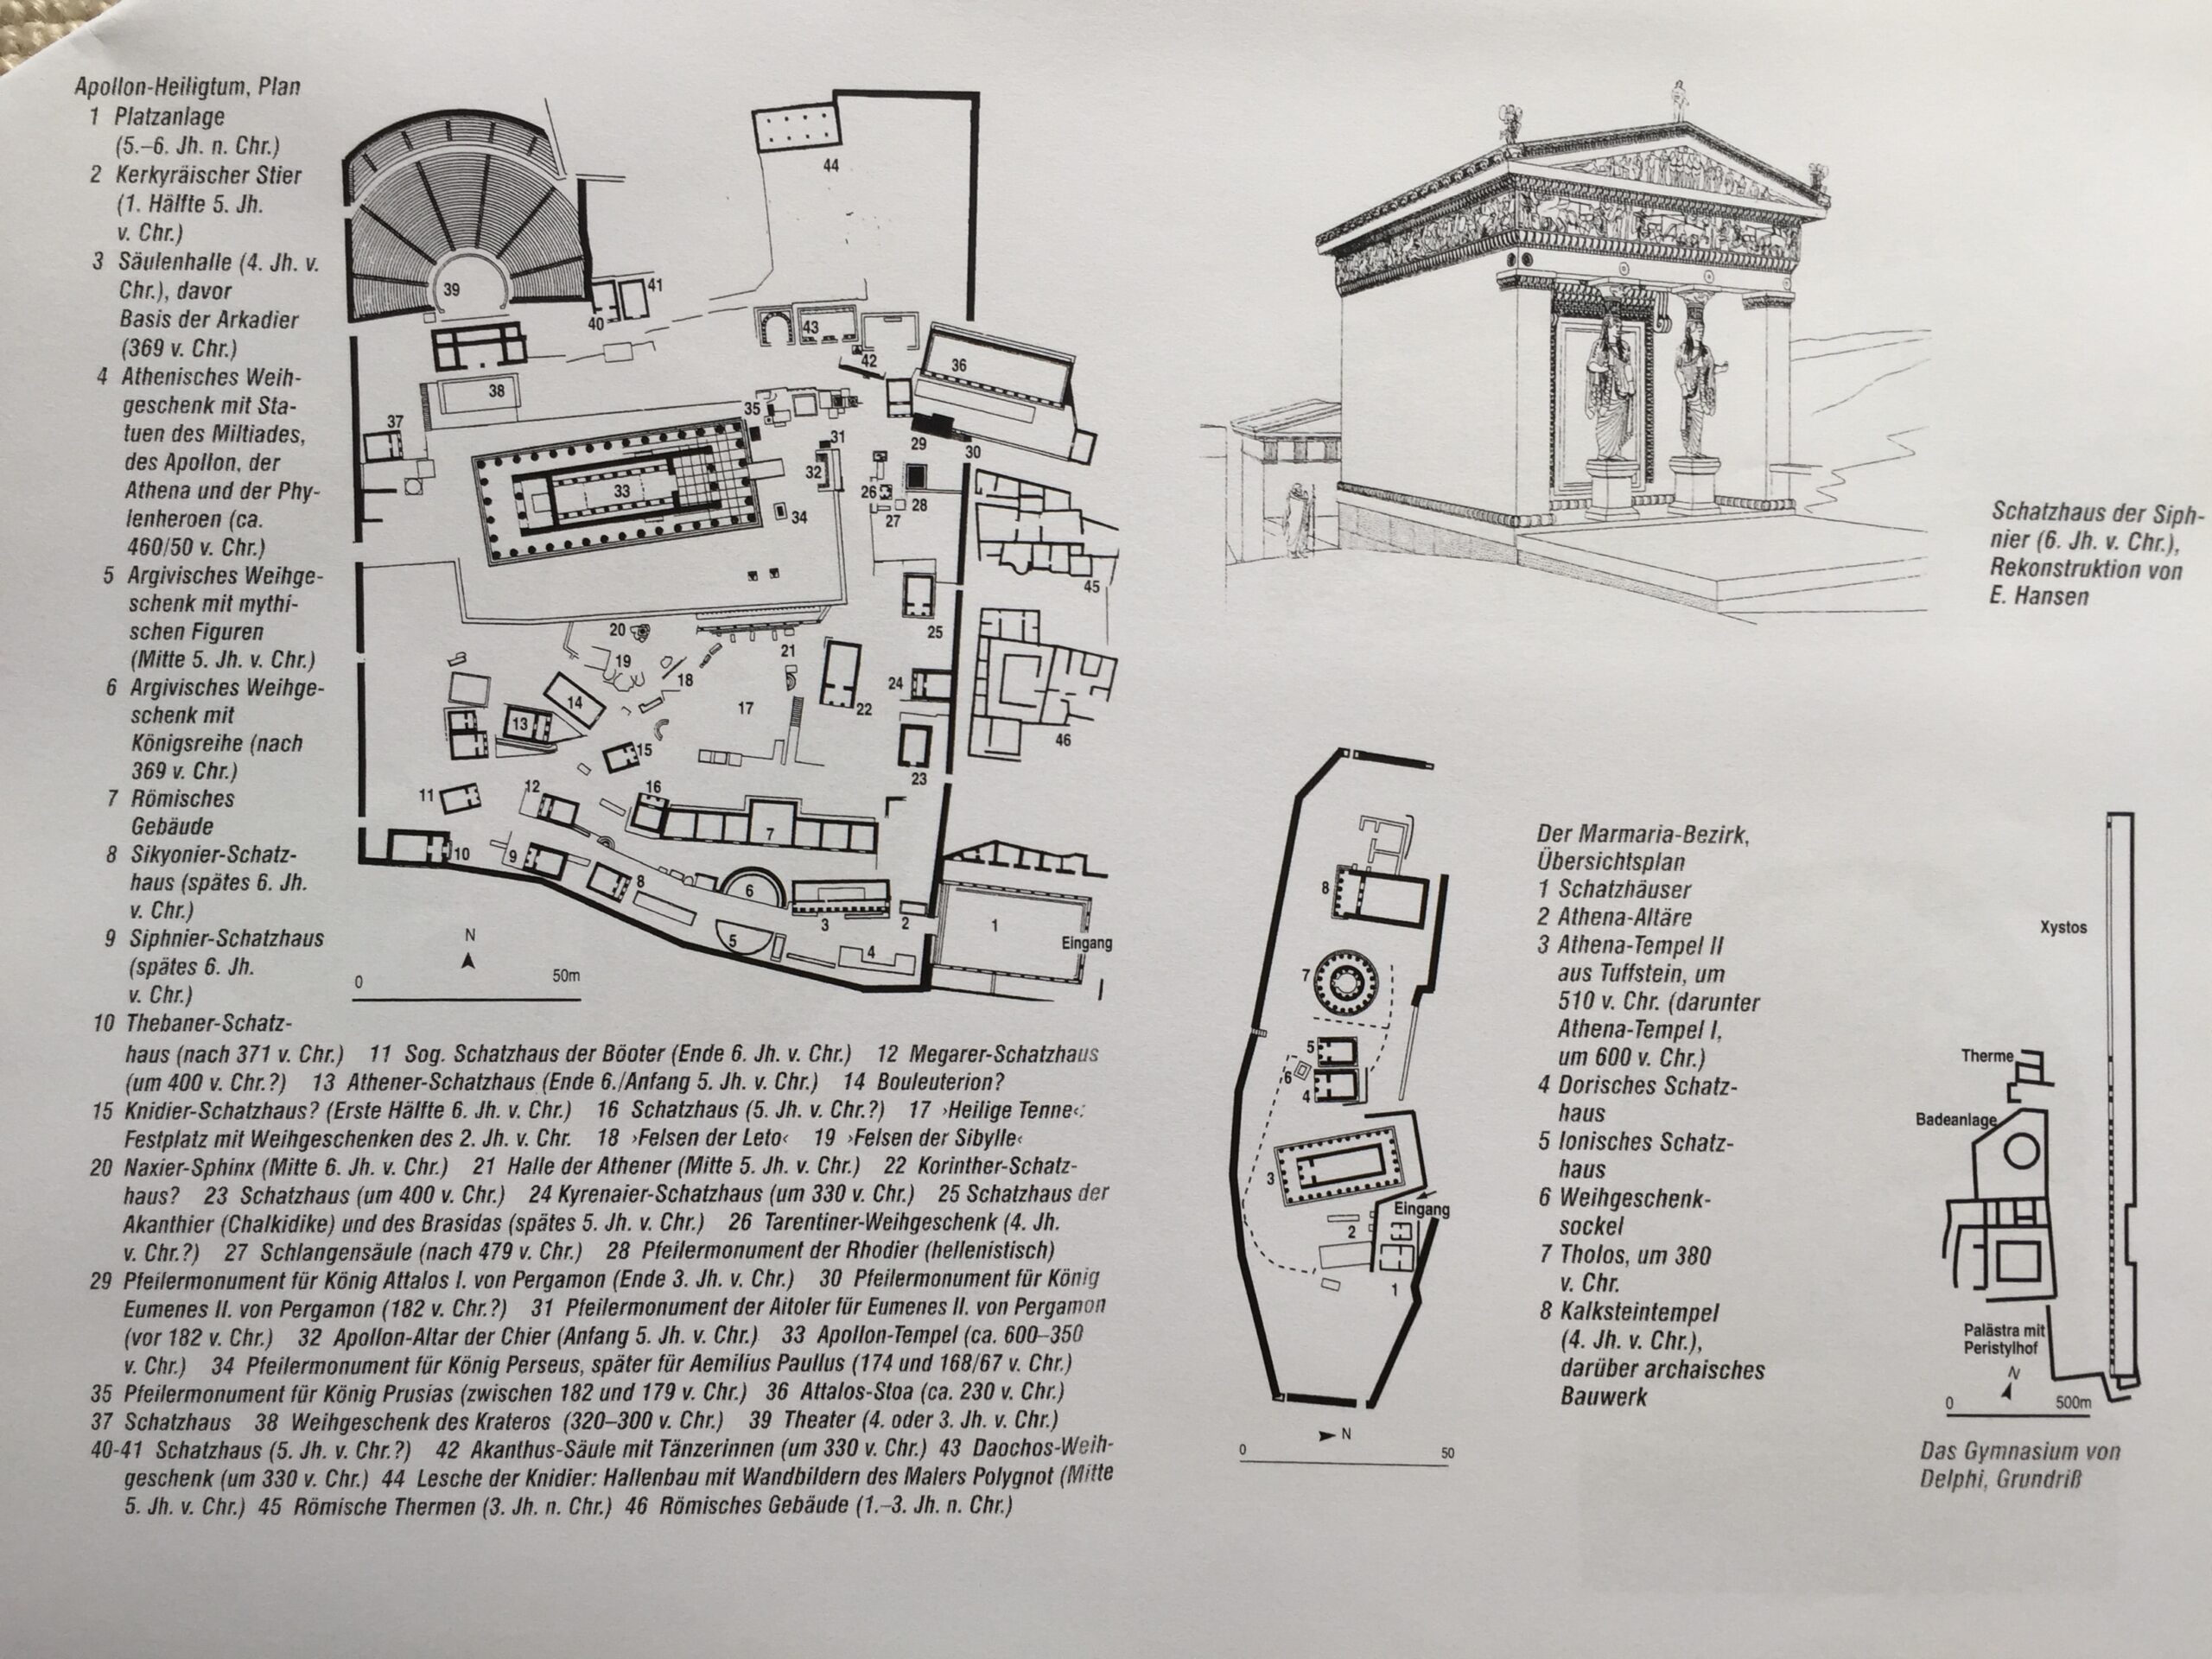 Apollon-Heiligtum, Plan
1 Platzanlage
(5.–6. Jh. n. Chr.)
2 Kerkyräischer Stier
(1. Hälfte 5. Jh.
v. Chr.)
3 Säulenhalle (4. Jh. v.
Chr.), davor
Basis der Arkadier
(369 v. Chr.)
4 Athenisches Weih-
geschenk mit Sta-
tuen des Miltiades,
des Apollon, der
Athena und der Phy-
lenheroen (ca.
460/50 v. Chr.)
5 Argivisches Weihge-
schenk mit mythi-
schen Figuren
(Mitte 5. Jh. v. Chr.)
6 Argivisches Weihge-
schenk mit
Königsreihe (nach
369 v. Chr.)
7 Römisches
Gebäude
8 Sikyonier-Schatz-
haus (spätes 6. Jh.
v. Chr.)
9 Siphnier-Schatzhaus
(spätes 6. Jh.
v. Chr.)
10 Thebaner-Schatz-
haus (nach 371 v. Chr.) 11 Sog. Schatzhaus der Böoter (Ende 6. Jh. v. Chr.) 12 Megarer-Schatzhaus
(um 400 v. Chr.?) 13 Athener-Schatzhaus (Ende 6./Anfang 5. Jh. v. Chr.) 14 Bouleuterion?
15 Knidier-Schatzhaus? (Erste Hälfte 6. Jh. v. Chr.) 16 Schatzhaus (5. Jh. v. Chr.?) 17 ›Heilige Tenne‹:
Festplatz mit Weihgeschenken des 2. Jh. v. Chr. 18 ›Felsen der Leto‹ 19 ›Felsen der Sibylle‹
20 Naxier-Sphinx (Mitte 6. Jh. v. Chr.) 21 Halle der Athener (Mitte 5. Jh. v. Chr.) 22 Korinther-Schatz-
haus? 23 Schatzhaus (um 400 v. Chr.) 24 Kyrenaier-Schatzhaus (um 330 v. Chr.) 25 Schatzhaus der
Akanthier (Chalkidike) und des Brasidas (spätes 5. Jh. v. Chr.) 26 Tarentiner-Weihgeschenk (4. Jh.
v. Chr.?) 27 Schlangensäule (nach 479 v. Chr.) 28 Pfeilermonument der Rhodier (hellenistisch)
29 Pfeilermonument für König Attalos I. von Pergamon (Ende 3. Jh. v. Chr.) 30 Pfeilermonument für König
Eumenes II. von Pergamon (182 v. Chr.?) 31 Pfeilermonument der Aitoler für Eumenes II. von Pergamon
(vor 182 v. Chr.) 32 Apollon-Altar der Chier (Anfang 5. Jh. v. Chr.) 33 Apollon-Tempel (ca. 600–350
v. Chr.) 34 Pfeilermonument für König Perseus, später für Aemilius Paullus (174 und 168/67 v. Chr.)
35 Pfeilermonument für König Prusias (zwischen 182 und 179 v. Chr.) 36 Attalos-Stoa (ca. 230 v. Chr.)
37 Schatzhaus 38 Weihgeschenk des Krateros (320–300 v. Chr.) 39 Theater (4. oder 3. Jh. v. Chr.)
40-41 Schatzhaus (5. Jh. v. Chr.?) 42 Akanthus-Säule mit Tänzerinnen (um 330 v. Chr.) 43 Daochos-Weih-
geschenk (um 330 v. Chr.) 44 Lesche der Knidier: Hallenbau mit Wandbildern des Malers Polygnot (Mitte
5. Jh. v. Chr.) 45 Römische Thermen (3. Jh. n. Chr.) 46 Römisches Gebäude (1.–3. Jh. n. Chr.)
44
39
41
40
43
42
36
38
37
35
31
29
30
32
33
26
28
27
34
45
25
20
21
19
18
24
14
17
22
13
15
46
23
11
12
16
7
10
9
8
6
3
2
1
5
4
Eingang
N
0 50m
Schatzhaus der Siph-
nier (6. Jh. v. Chr.),
Rekonstruktion von
E. Hansen
8
7
5
6
4
3
Eingang
2
1
N
0 50
Der Marmaria-Bezirk,
Übersichtsplan
1 Schatzhäuser
2 Athena-Altäre
3 Athena-Tempel II
aus Tuffstein, um
510 v. Chr. (darunter
Athena-Tempel I,
um 600 v. Chr.)
4 Dorisches Schatz-
haus
5 Ionisches Schatz-
haus
6 Weihgeschenk-
sockel
7 Tholos, um 380
v. Chr.
8 Kalksteintempel
(4. Jh. v. Chr.),
darüber archaisches
Bauwerk
Xystos
Therme
Badeanlage
Palästra mit
Peristylhof
N
0 500m
Das Gymnasium von
Delphi, Grundriß